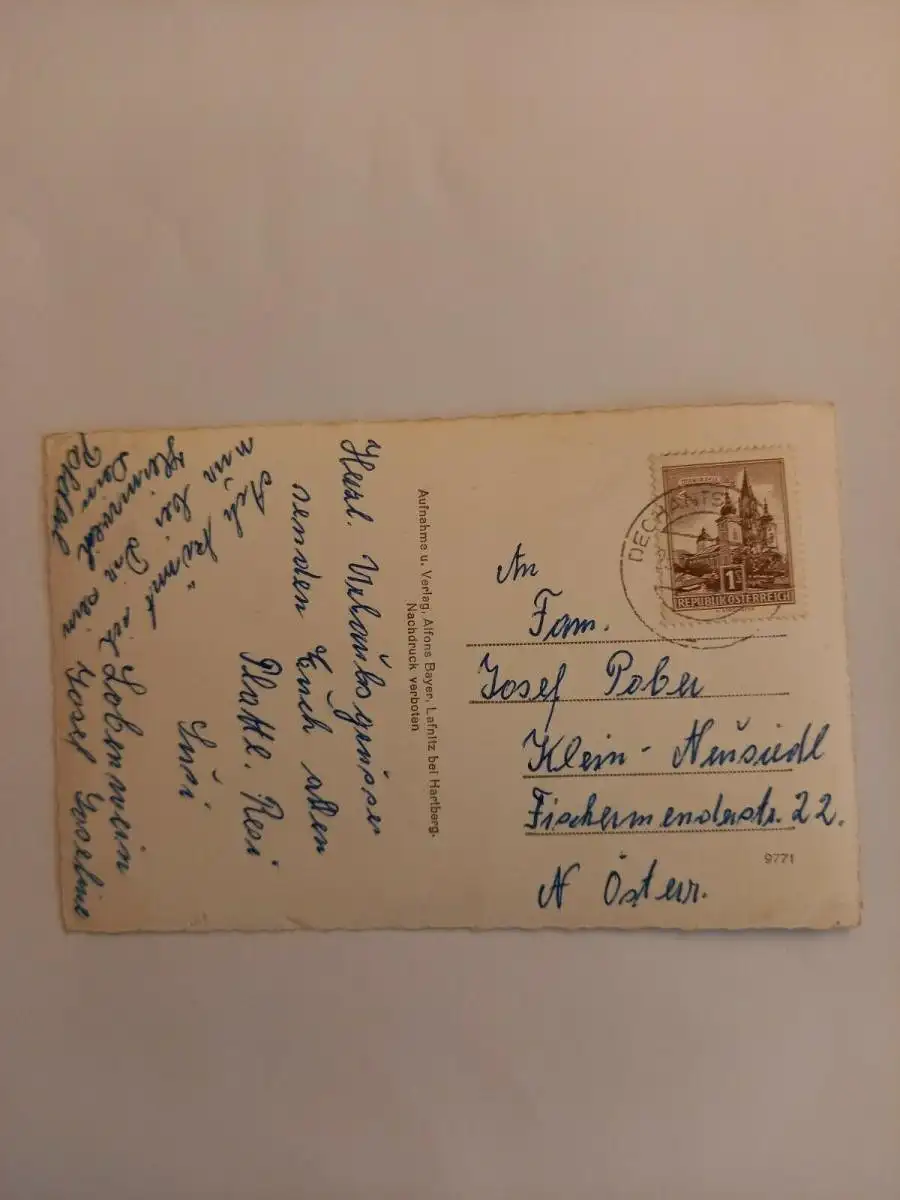 Herzl. Urlaubsgrüsse
senden Euch allen
Plattl. Resi
Susi
Ich
nur bei Dir sein
Heinrich
Dein
Josef
Aufnahme u. Verlag, Alfons Bayer, Lafnitz bei Hartberg.
Nachdruck verboten
DECHANTS
1S
REPUBLIK ÖSTERREICH
An
Fam.
Josef Pober
Klein-Neusiedl
Fischamenderstr. 22.
N Österr.
9771